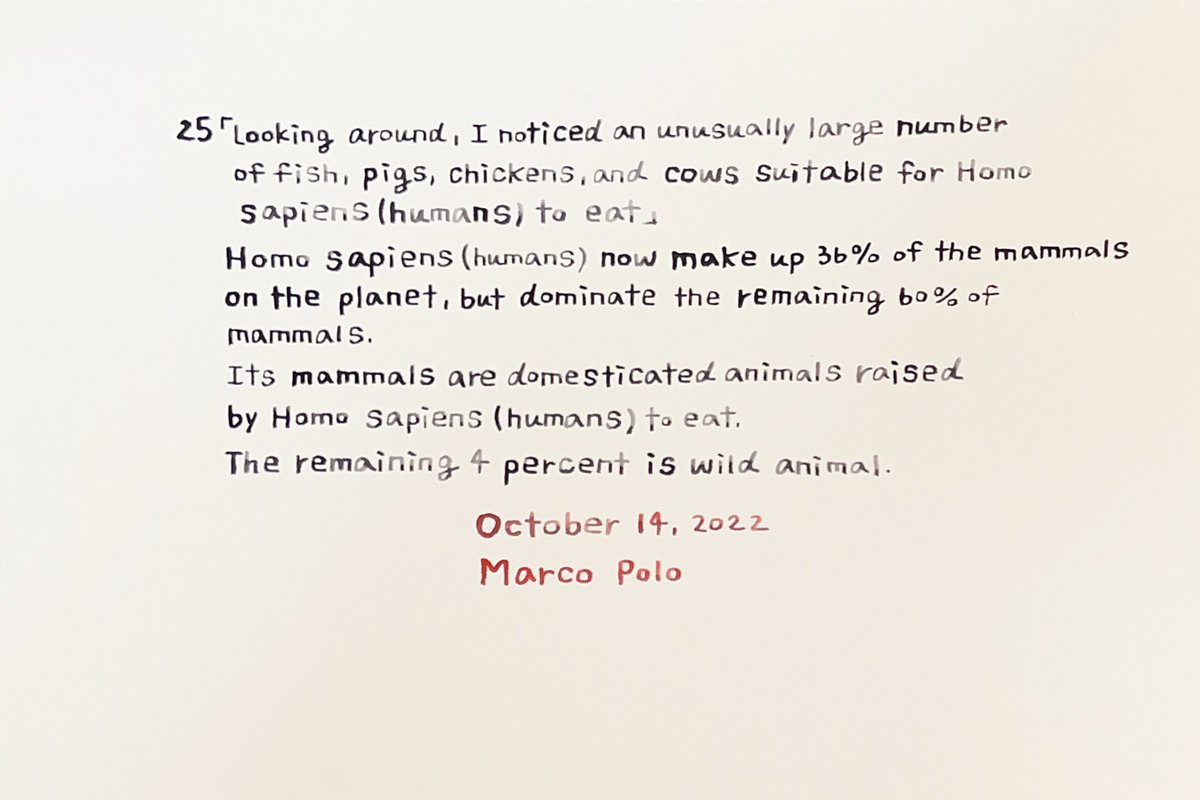 25「Looking around, I noticed an unusually large number
of fish, pigs, chickens, and cows suitable for Homo
sapiens (humans) to eat」
Homo sapiens (humans) now make up 36% of the mammals
on the planet, but dominate the remaining 60% of
mammals.
Its mammals are domesticated animals raised
by Homo sapiens (humans) to eat.
The remaining 4 percent is wild animal.
October 14, 2022
Marco Polo